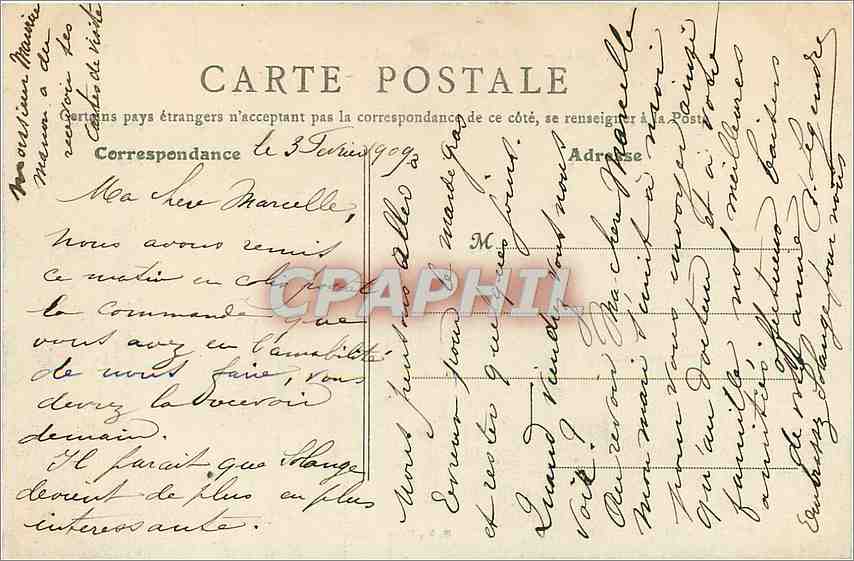 Monsieur Maurice
manon a du
recevoir ses
cartes de visite
CARTE POSTALE
Certains pays étrangers n'acceptant pas la correspondance de ce côté, se renseigner à la Poste
Correspondance
Adresse
le 3 Fevrier 1909
Ma chere Marcelle,
nous avons remis
ce matin en colis postal
la commande que
vous avez eu l'amabilité
de nous faire, vous
devrez la recevoir
demain.
Il parait que Solange
devient de plus en plus
interessante.
M
CPAPHIL
Nous pensons aller à
Evreux pour le mardi gras
et rester quelques jours.
Quand viendrez vous nous
voir ?
Au revoir ma chere Marcelle
mon mari s'unit à moi
pour vous envoyer ainsi
qu'au Docteur et à votre
famille nos meilleures
amitiés. affectueux baisers
de votre amie
D. Legendre
Embrassez Solange pour nous